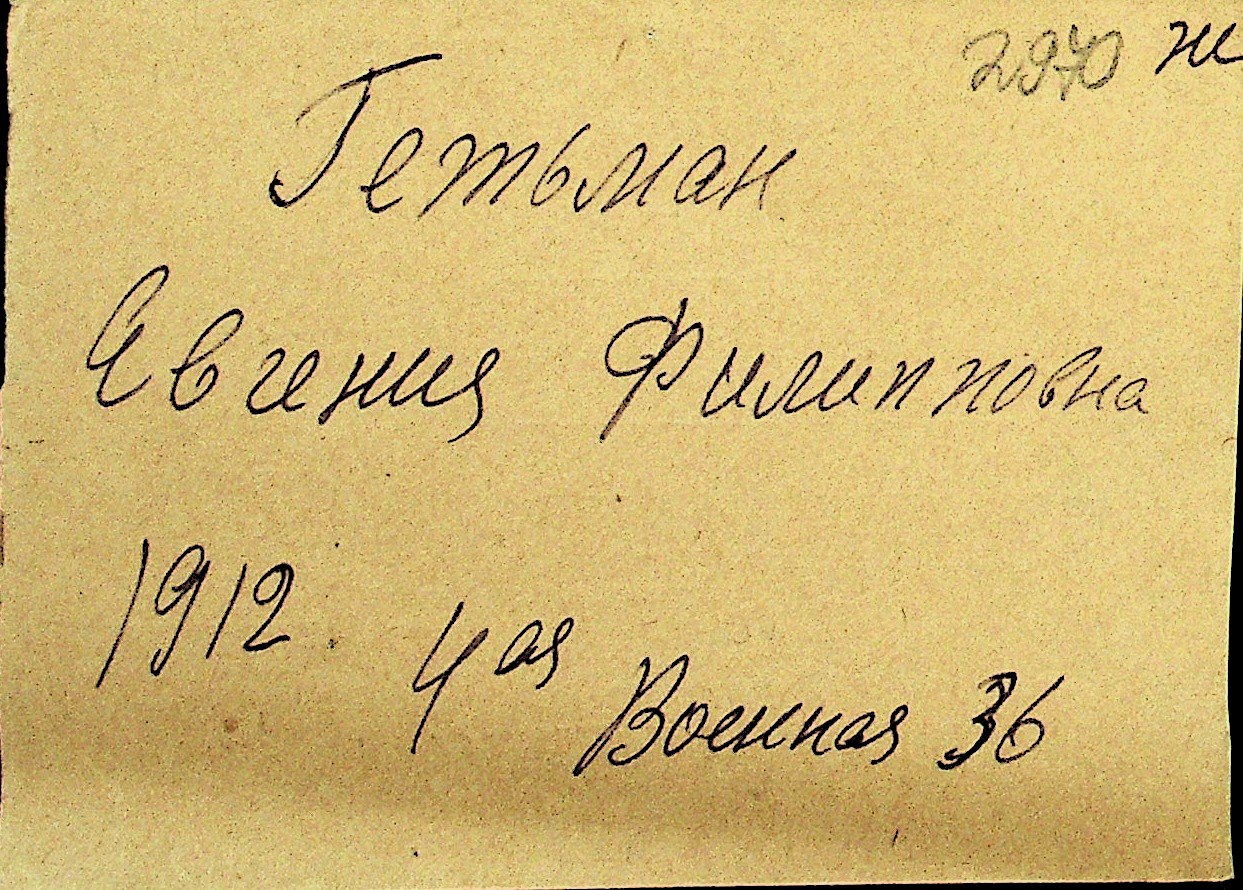 ж
Гетьман
Евгения Филипповна
1912
4ая Военная 36